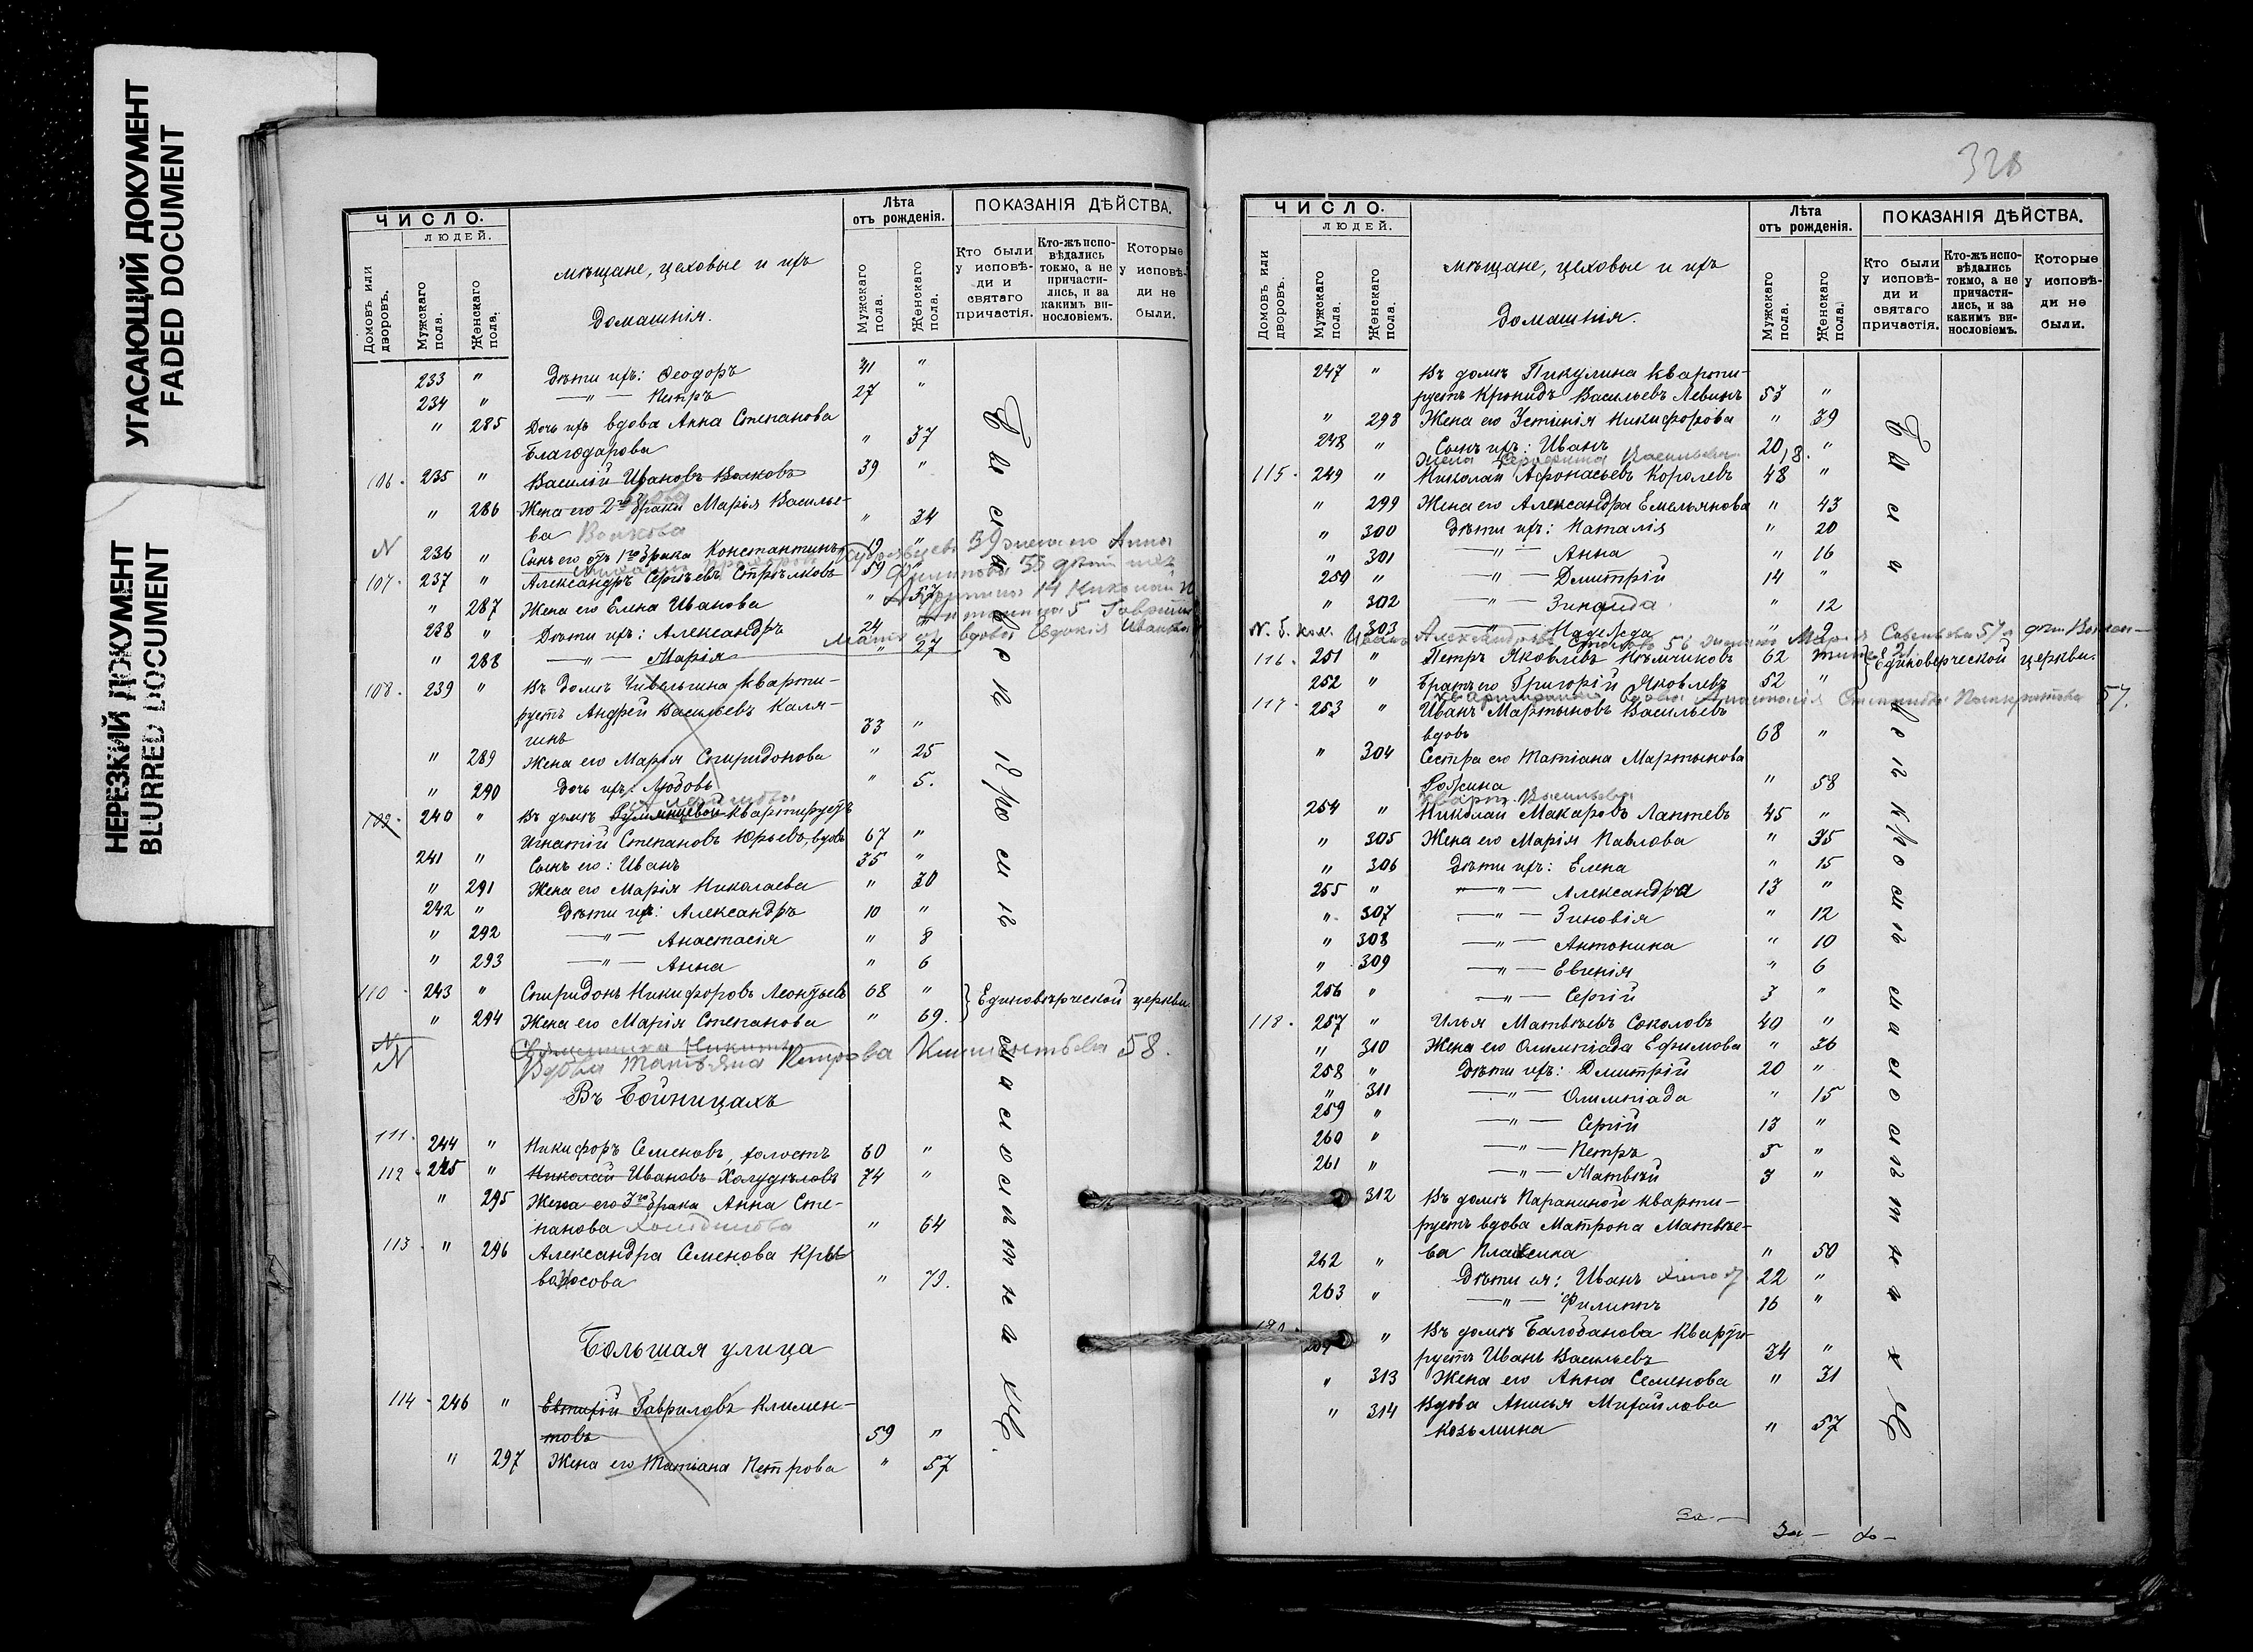 УГАСАЮЩИЙ ДОКУМЕНТ
FADED DOCUMENT
НЕРЕЗКИЙ ДОКУМЕНТ
BLURRED DOCUMENT
ЧИСЛО.
ЛЮДЕЙ.
Домовъ или дворовъ.
Мужскаго пола.
Женскаго пола.
мѣщане, цеховые и ихъ
домашнія.
Лѣта
отъ рожденія.
Мужскаго пола.
Женскаго пола.
ПОКАЗАНІЯ ДѢЙСТВА.
Кто были у исповѣди и святаго причастія.
Кто-жъ исповѣдались токмо, а не причастились, и за какимъ винословіемъ.
Которые у исповѣди не были.
233 " Дѣти ихъ: Ѳеодоръ 31 "
234 " —"— Петръ 27 "
" 285 Дочь ихъ вдова Анна Степанова
Благодарова " 37
106. 235 " Василій Ивановъ Волковъ 39 "
" 286 Жена его 2го брака Марія Василье-
ва Волкова " 34
N 236 " Сынъ его отъ 1го брака Константинъ 12 "
107. 237 " Александръ Сергѣевъ Стрѣлковъ 59 "
" 287 Жена его Елена Иванова "
238 " Дѣти ихъ: Александръ 24 "
" 288 —"— Марія " 27
108. 239 " Въ домѣ Чивельгина кварти-
руетъ Андрей Васильевъ Каля-
гинъ 33 "
" 289 Жена его Марія Спиридонова " 25
" 290 Дочь ихъ: Любовь " 5.
109. 240 " Въ домѣ Румянцевой квартируетъ
Игнатій Степановъ Юрьевъ, вдовъ 67 "
241 " Сынъ его: Иванъ 35 "
" 291 Жена его Марія Николаева " 30
242 " Дѣти ихъ: Александръ 10 "
" 292 —"— Анастасія " 8
" 293 —"— Анна " 6
110. 243 " Спиридонъ Никифоровъ Леонтьевъ 68 " } Единовѣрческой церкви.
" 294 Жена его Марія Степанова " 69.
N
N Вдова Татьяна Петрова Климентьева 58.
Въ Бойницахъ
111. 244 " Никифоръ Семеновъ, холостъ 60 "
112. 245 " Николай Ивановъ Холудѣловъ 74 "
" 295 Жена его 3го брака Анна Сте-
панова " 64
113. " 296 Александра Семенова Кры-
" 73.
Большая улица
114. 246 " Евтихій Гавриловъ Климен-
товъ 59 "
" 297 Жена его Татіана Петрова " 57
328
ЧИСЛО.
ЛЮДЕЙ.
Домовъ или дворовъ.
Мужскаго пола.
Женскаго пола.
мѣщане, цеховые и ихъ
домашнія.
Лѣта
отъ рожденія.
Мужскаго пола.
Женскаго пола.
ПОКАЗАНІЯ ДѢЙСТВА.
Кто были у исповѣди и святаго причастія.
Кто-жъ исповѣдались токмо, а не причастились, и за какимъ винословіемъ.
Которые у исповѣди не были.
247 " Въ домѣ Пикулина кварти-
руетъ Кронидъ Васильевъ Левинъ 53 "
" 298 Жена его Устинія Никифорова " 39
248 " Сынъ ихъ: Иванъ 20 "
18.
115. 249 " Николай Афонасьевъ Королевъ 48 "
" 299 Жена его Александра Емельянова " 43
" 300 Дѣти ихъ: Наталія " 20
" 301 —"— Анна " 16
250 " —"— Дмитрій 14 "
" 302 —"— Зинаида " 12
303 —"— Надежда " 9
116. 251 " Петръ Яковлевъ Кѣмчиковъ 62 " } Единоверческой церкви.
252 " Братъ его Григорій Яковлевъ 52 "
57.
117. 253 " Иванъ Мартыновъ Васильевъ
вдовъ 68 "
" 304 Сестра его Татіана Мартынова
" 58
254 " Николай Макаровъ Лаптевъ 45 "
" 305 Жена его Марія Павлова " 35
" 306 Дѣти ихъ: Елена " 15
255 " —"— Александра 13 "
" 307 —"— Зиновія " 12
" 308 —"— Антонина " 10
" 309 —"— Евгенія " 6
256 " —"— Сергій 3 "
118. 257 " Илья Матвѣевъ Соколовъ 40 "
" 310 Жена его Олимпіада Ефимова " 36
258 " Дѣти ихъ: Дмитрій 20 "
" 311 —"— Олимпіада " 15
259 " —"— Сергій 13 "
260 " —"— Петръ 5 "
261 " —"— Матвѣй 3 "
312 Въ домѣ Параниной кварти-
руетъ вдова Матрона Матвѣе-
ва " 50
262 " Дѣти ея: Иванъ 22 "
263 " —"— Филиппъ 16 "
" Въ домѣ Балобанова кварти-
руетъ Иванъ Васильевъ 34 "
" 313 Жена его Анна Семенова " 31
" 314 Вдова Анисья Михайлова
Козьмина " 57